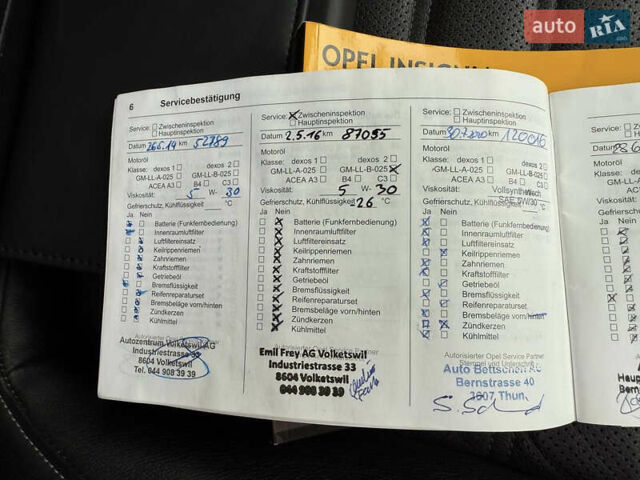 auto RIA
.com
OPEL INSIGNIA
6 Servicebestätigung
Service: Zwischeninspektion
Hauptinspektion
Datum 26.6.14 km 52789
Motoröl
Klasse: dexos 1 dexos 2
GM-LL-A-025 GM-LL-B-025
ACEA A3 B4 C3
Viskosität: 5 W- 30
Gefrierschutz, Kühlflüssigkeit °C
Ja Nein
Batterie (Funkfernbedienung)
Innenraumluftfilter
Luftfiltereinsatz
Keilrippenriemen
Zahnriemen
Kraftstofffilter
Getriebeöl
Bremsflüssigkeit
Reifenreparaturset
Bremsbeläge vorn/hinten
Zündkerzen
Kühlmittel
Autorisierter Opel Service
Autozentrum Volketswil AG
Industriestrasse 33
8604 Volketswil
Tel. 044 908 39 39
Service: X Zwischeninspektion
Hauptinspektion
Datum 2.5.16 km 87055
Motoröl
Klasse: dexos 1 dexos 2
GM-LL-A-025 GM-LL-B-025 X
ACEA A3 B4 C3
Viskosität: 5 W- 30
Gefrierschutz, Kühlflüssigk. 26 °C
Ja Nein
Batterie (Funkfernbedienung)
Innenraumluftfilter
Luftfiltereinsatz
Keilrippenriemen
Zahnriemen
Kraftstofffilter
Getriebeöl
Bremsflüssigkeit
Reifenreparaturset
Bremsbeläge vorn/hinten
Zündkerzen
Kühlmittel
Autorisierter Opel Service Partner
Emil Frey AG Volketswil
Industriestrasse 33
8604 Volketswil
044 908 39 39
Service: Zwischeninspektion
Hauptinspektion
Datum km 120016
Motoröl
Klasse: dexos 1 dexos 2
GM-LL-A-025 GM-LL-B-025
ACEA A3 B4 C3
Viskosität: Vollsynthetisch
SAE 5W/30
Gefrierschutz, Kühlflüssigkeit °C
Ja Nein
Batterie (Funkfernbedienung)
Innenraumluftfilter
Luftfiltereinsatz
Keilrippenriemen
Zahnriemen
Kraftstofffilter
Getriebeöl
Bremsflüssigkeit
Reifenreparaturset
Bremsbeläge vorn/hinten
Zündkerzen
Kühlmittel
Autorisierter Opel Service Partner
Stempel und Unterschrift
Auto Bettschen AG
Bernstrasse 40
3607 Thun
Service:
Datum
Motoröl
Klasse:
Viskosität:
Gefrierschutz
Ja Nein